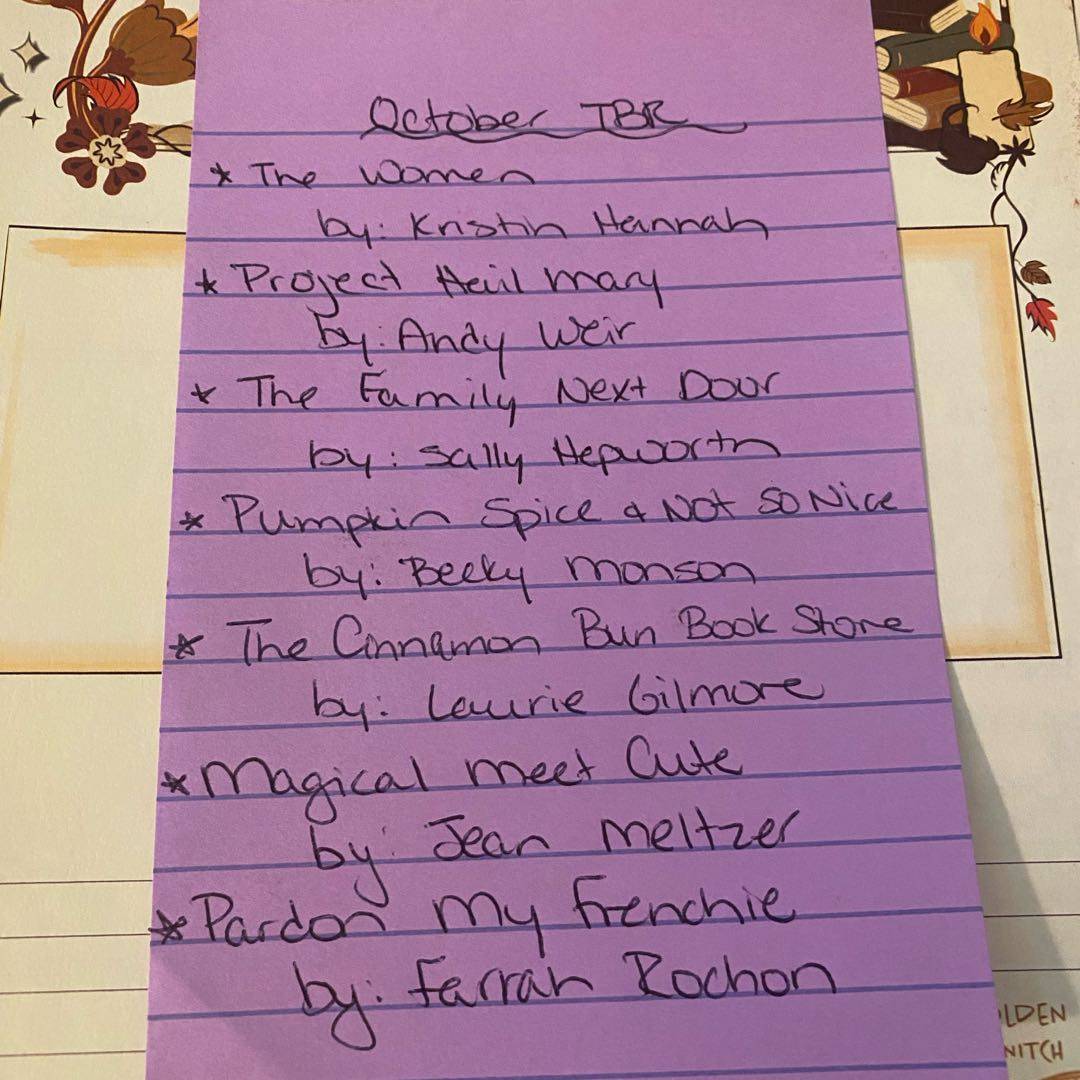 October TBR
* The Women
by: Kristin Hannah
* Project Hail Mary
by: Andy Weir
* The Family Next Door
by: Sally Hepworth
* Pumpkin Spice & Not So Nice
by: Becky Monson
* The Cinnamon Bun Book Store
by: Laurie Gilmore
* Magical Meet Cute
by: Jean Meltzer
* Pardon My Frenchie
by: Farrah Rochon
LDEN
NITCH